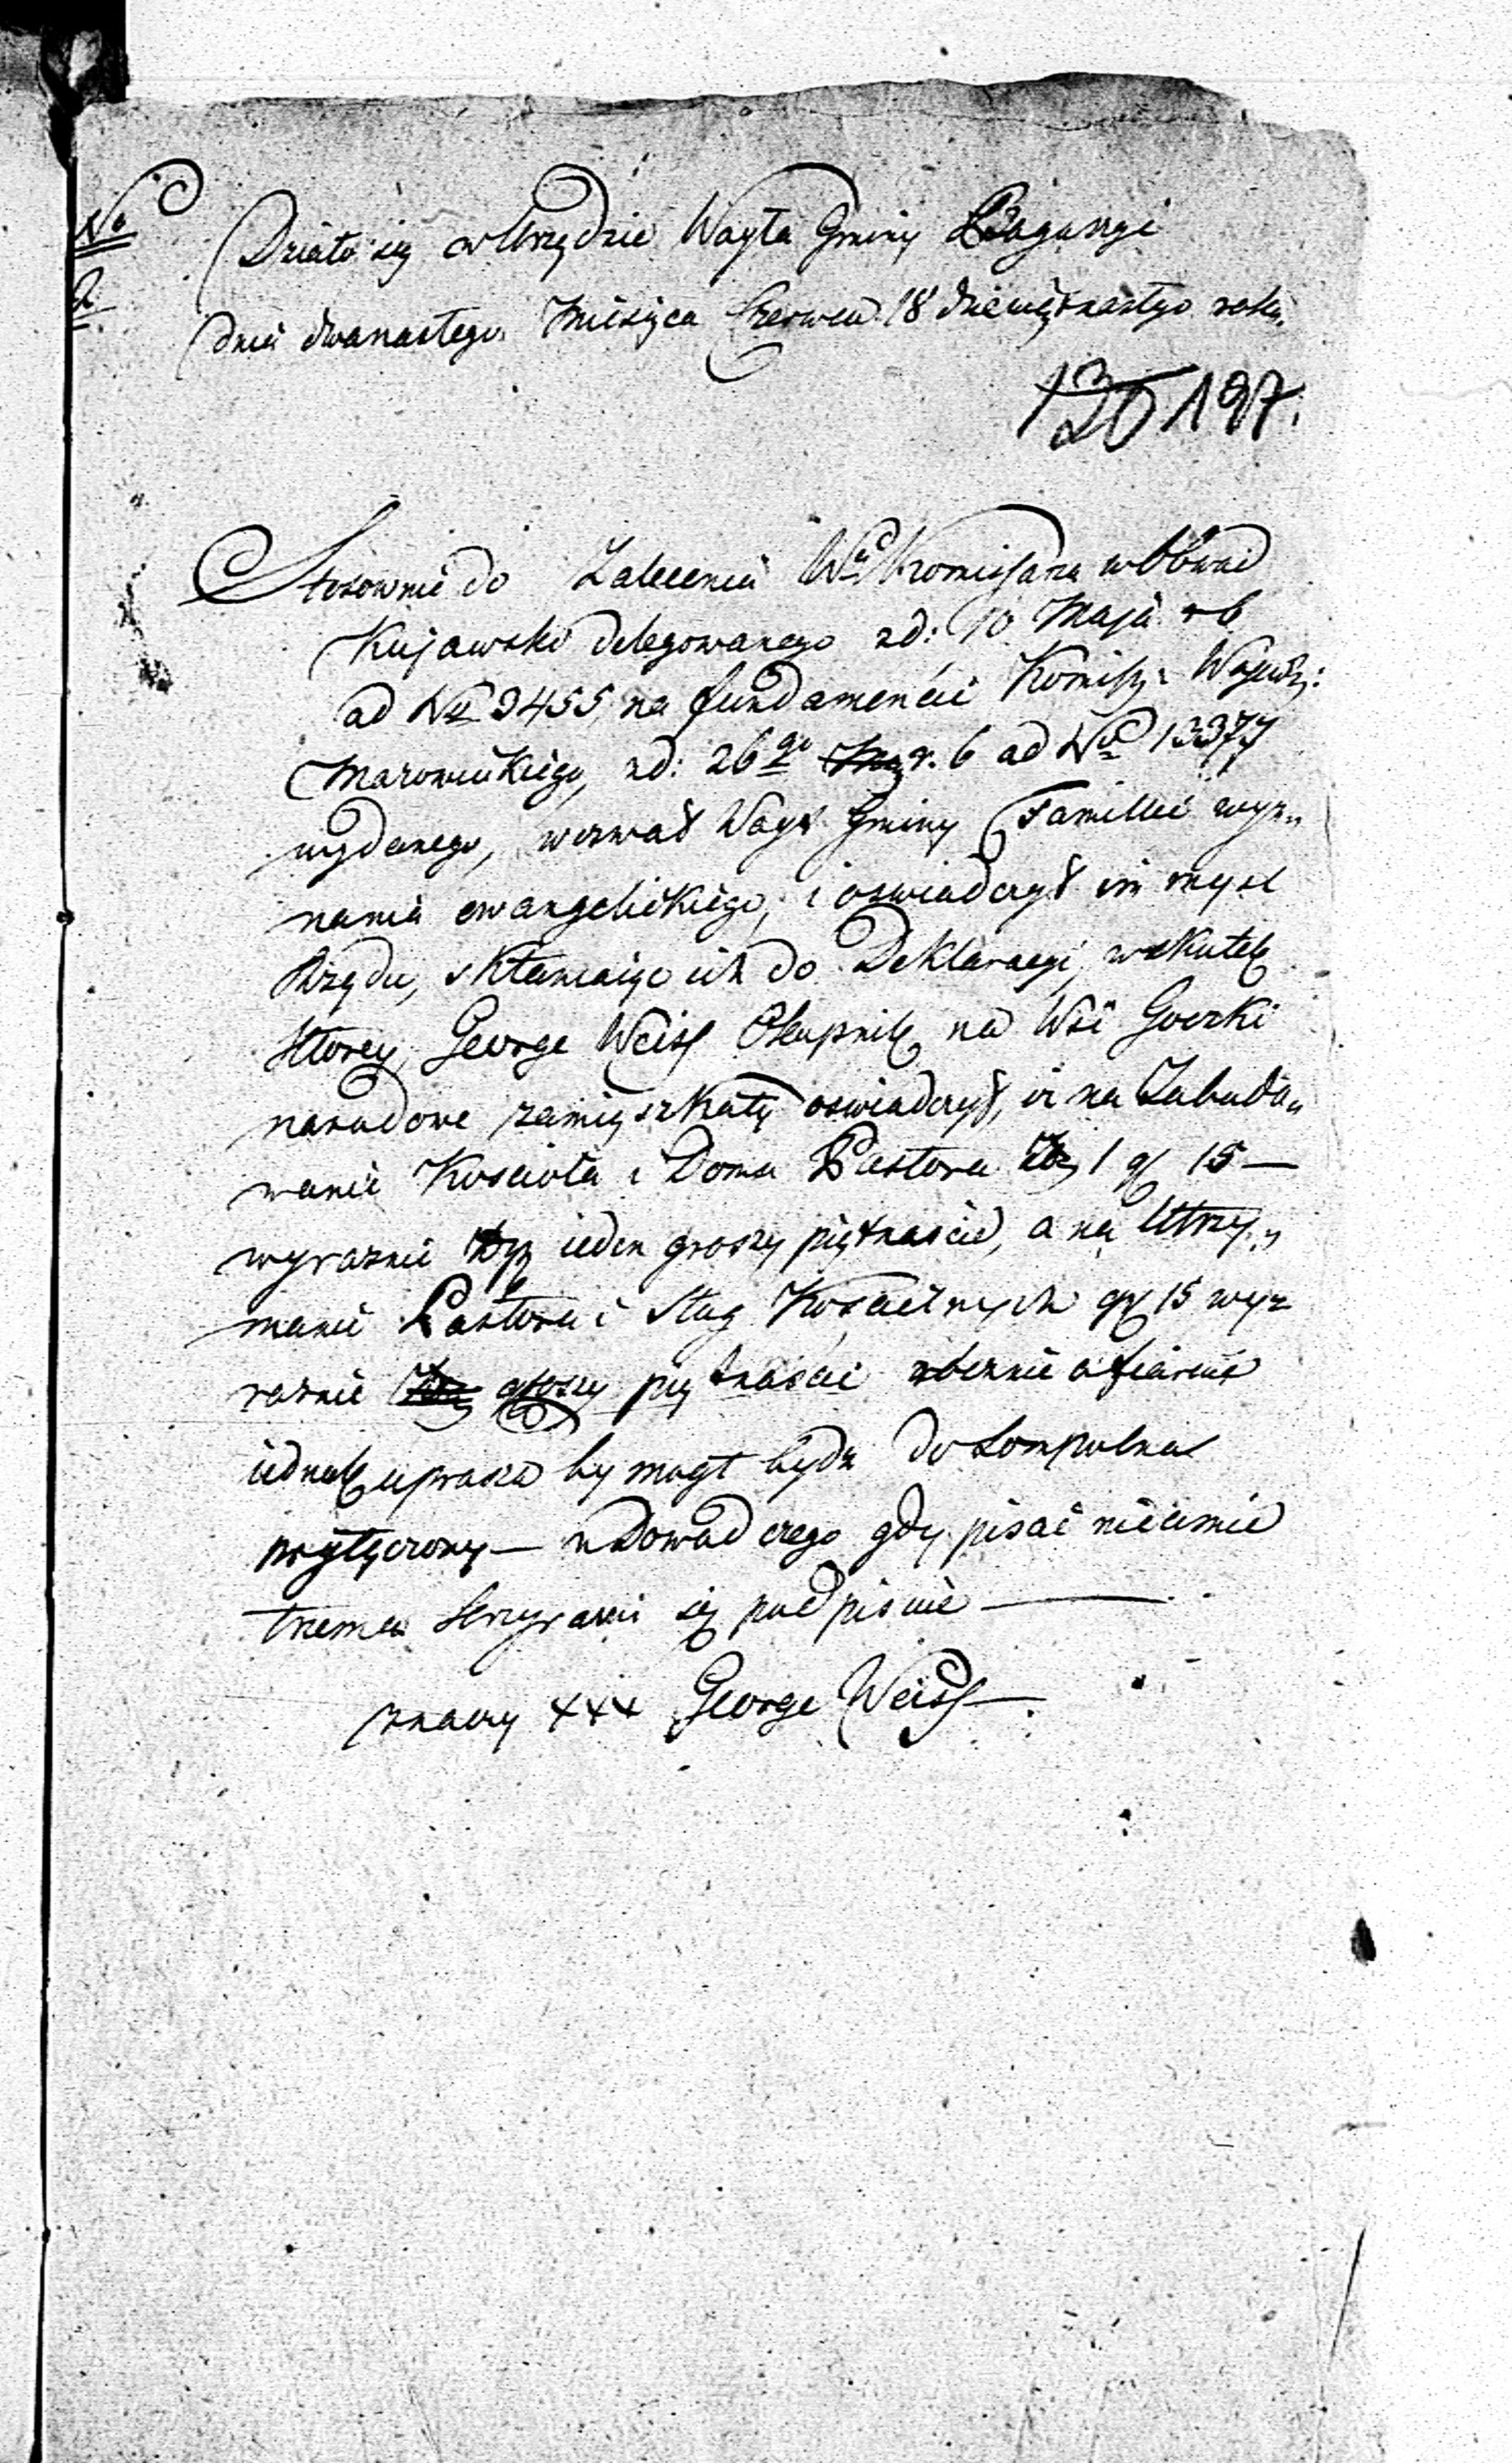 No
2.
Działo się w Urzędzie Wayta Gminy
dnia dwanastego Miesiąca Czerwca 18 dziewiętnastego roku.
130 197.
Stosownie do Zalecenia Wo Kommissarza w Obwod
Kujawski delegowanego z d: 10 Maja r b
ad No 9455, na fundamencie Komissyi Wojewdz:
Mazowieckiego, z d: 26go r. b ad No 13377
wydanego, wezwał Wayt Gminy Familie wyz„
nania ewangelickiego, i oswiadczył im mysl
Rządu, skłaniaiąc ich do Deklaracyi, w skutek
ktorey, George Weiss Okupnik na Wsi Gorzki
zamięszkały oswiadczył, iż na Zabudo„
wanie Koscioła i Domu Pastora 1 gr 15 —
wyraznie ieden groszy piętnascie, a na Utrzy„
manie Pastora i sług Koscielnych gr 15 wyr
raznie groszy piętnascie rocznie ofiaruie
iednak uprasza by mogł bydz do Sompolna
przyłączony — na dowod czego gdy pisać nieumie
trzema krzyzami się podpisuie —
znaczy +++ George Weiss —